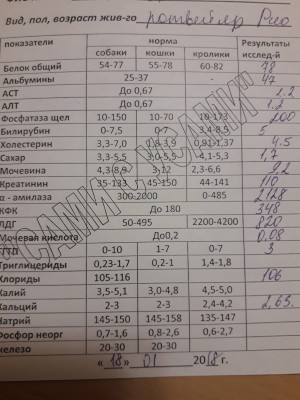 Вид, пол, возраст жив-го ротвейлер Рио
показатели норма Результаты исслед-й
собаки кошки кролики
Белок общий 54-77 55-78 60-82 78
Альбумины 25-37 - 47
АСТ До 0,67 1.2
АЛТ До 0,67 1.2
Фосфатаза щел 10-150 10-70 10-173 200
Билирубин 0-7,5 0-7 3,4-8,9 5
Холестерин 3,3-7,0 1,8-3,9 0,91-1,37 4.5
Сахар 3,3-5,5 3,0-5,5 4,1-5,3 1,7
Мочевина 4,3-8,9 3-12 2,3-6,6 92
Креатинин 35-133 45-150 44-141 110
α - амилаза 300-2000 0-485 2128
КФК До 180 348
ЛДГ 50-495 2200-4200 820
Мочевая кислота До0,2 0.08
ГГТП 0-10 1-7 0-7 3
Триглицериды 0,23-1,7 0,2-1 1,4-1,8
Хлориды 105-116 106
Калий 3,5-5,1 3,0-4,8 4,5-5,0
Кальций 2-3 2-3 2,4-4,2 2,63
Натрий 145-150 145-158 135-147
Фосфор неорг 0,7-1,6 0,8-2,6 0,6-2,7
железо 20-30 20-30
«18» 01 2018 г.